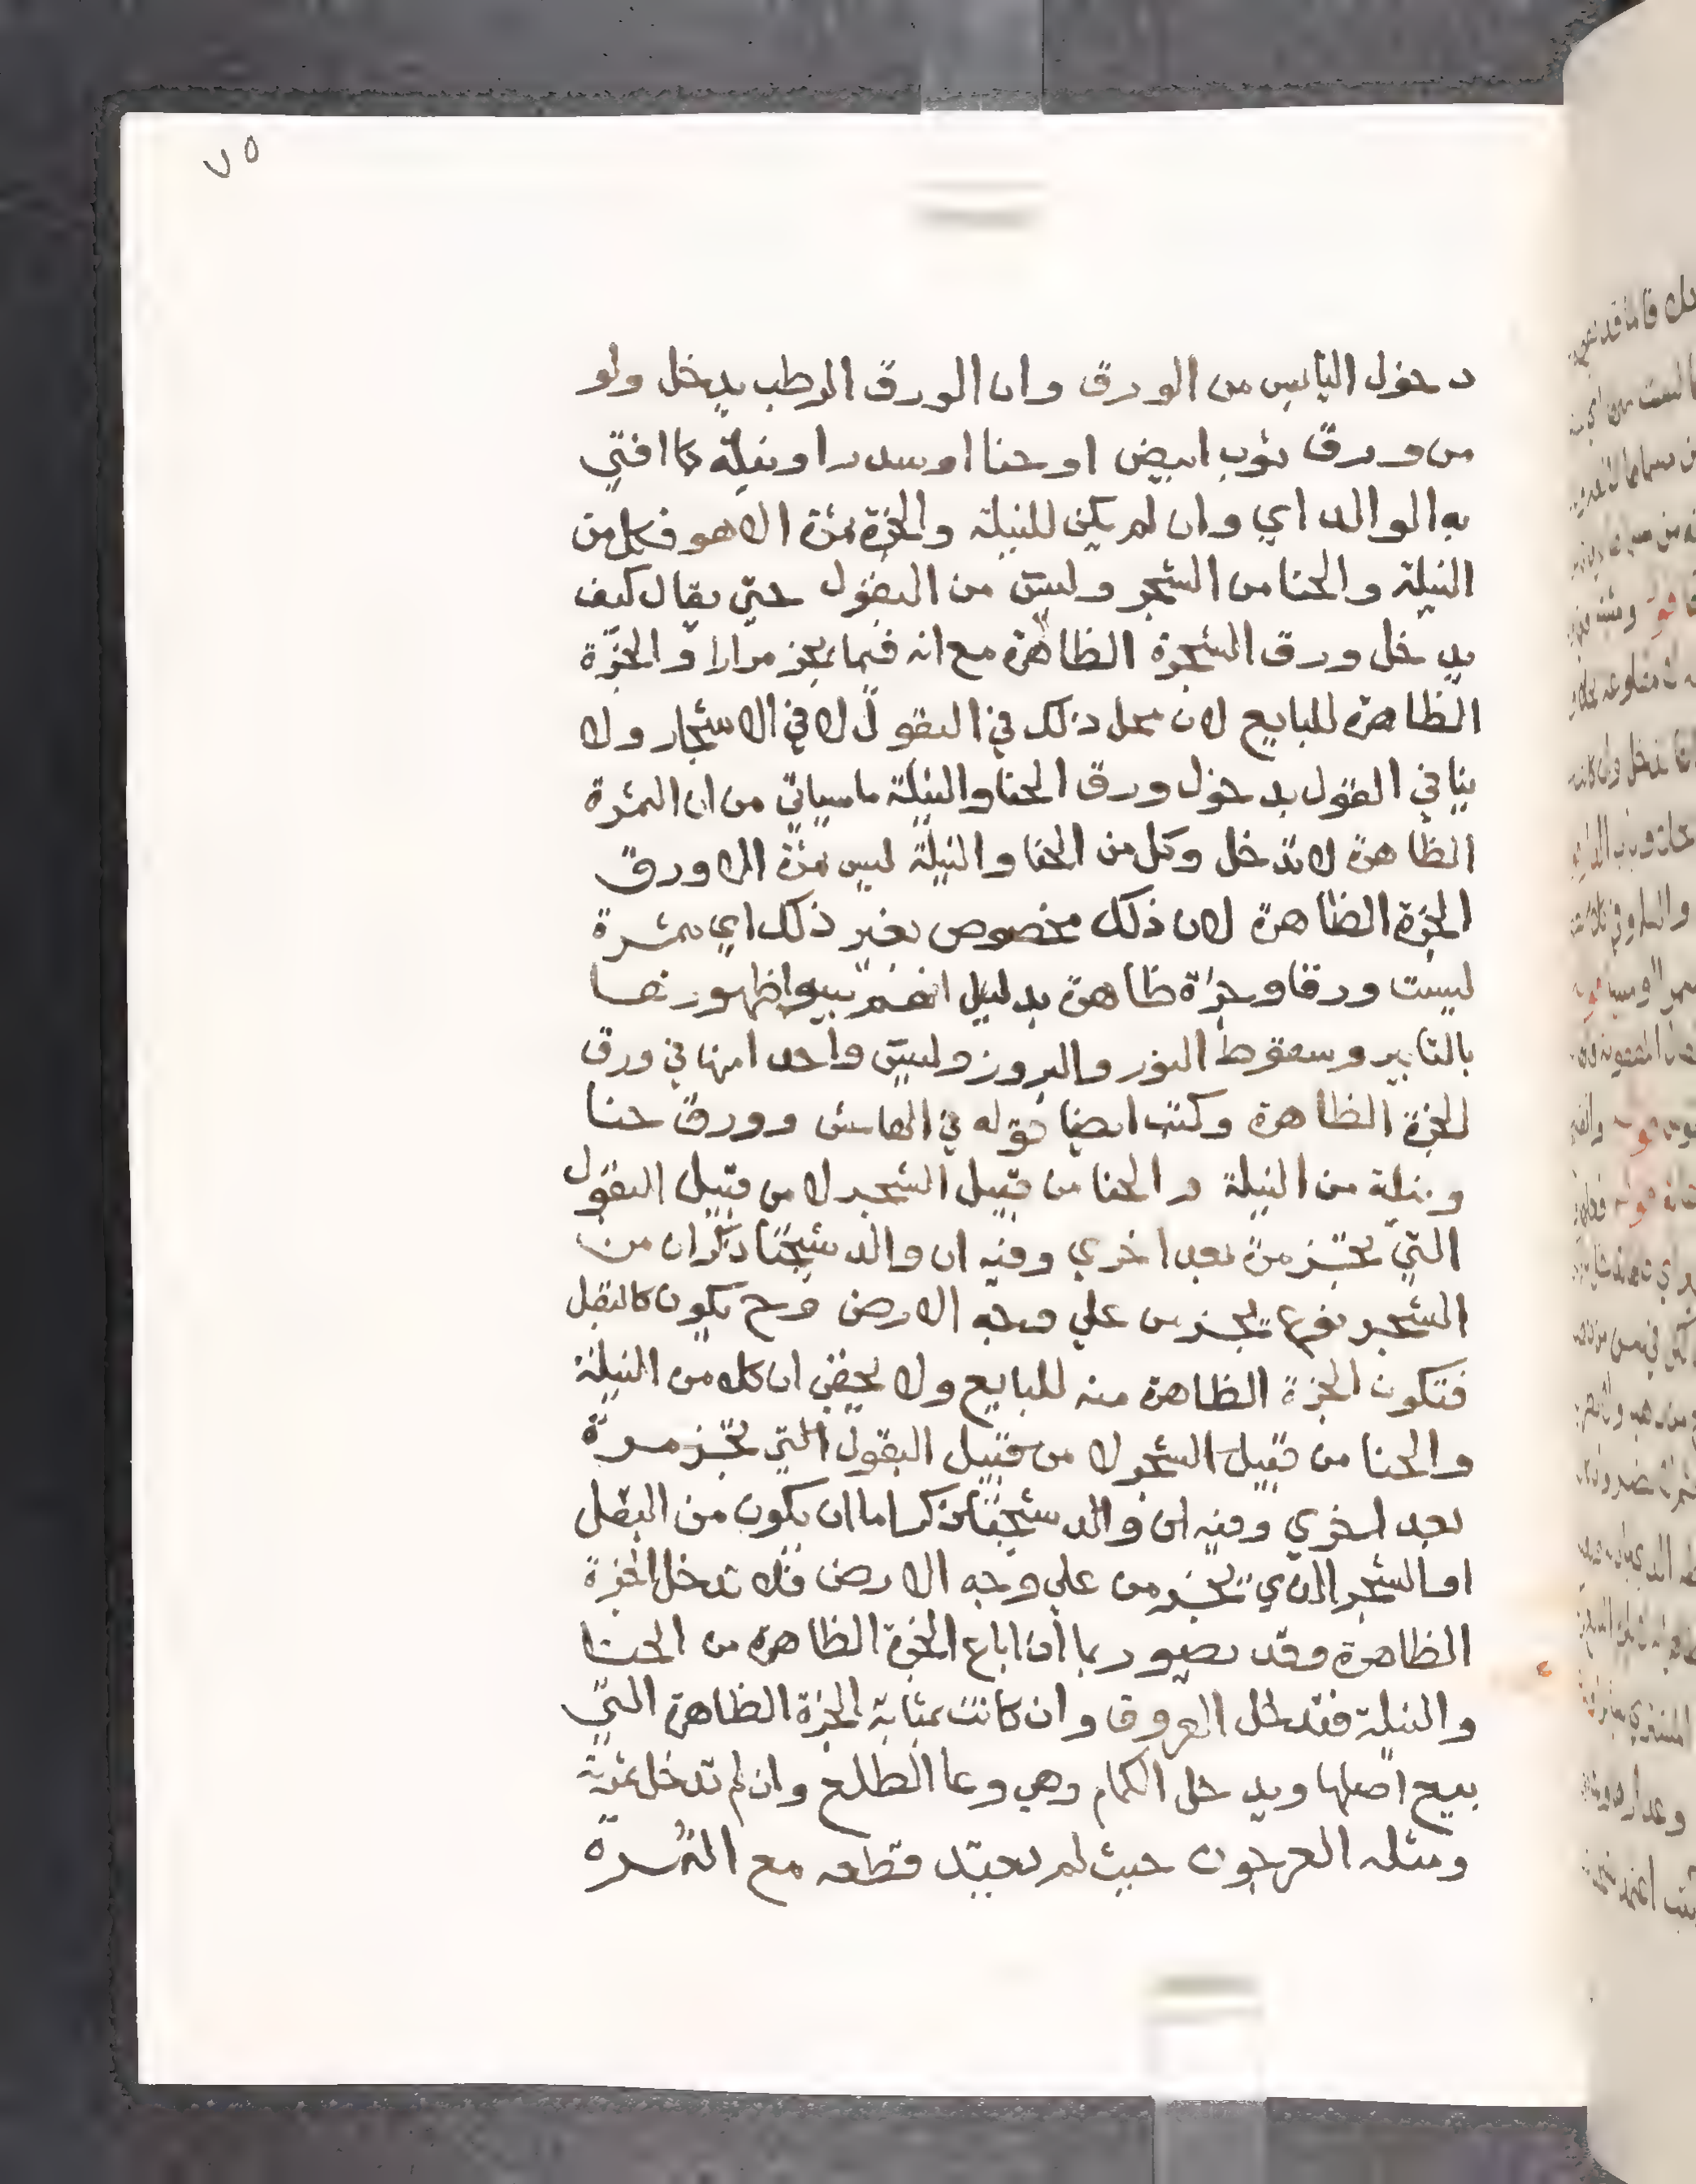 ٧٥
دخول اليابس من الورق وان الورق الرطب يدخل ولو
من ورق توت ابيض او حنا او سدر او نيلة كما افتي
به الوالد اي وان لم يكن للنيلة والجزة ثمرة الا هو فكل من
النيلة والحنا من الشجر وليس من البقول حتي يقال كيف
يدخل ورق الشجرة الظاهرة مع انه فيما يجز مرارا والجزة
الظاهرة للبايع لان محل ذلك في البقول لا في الاشجار ولا
ينافي القول بدخول ورق الحنا والنيلة ما سياتي من ان الثمرة
الظاهرة لا تدخل وكل من الحنا والنيلة ليس ثمرة الا ورق
الجزة الظاهرة لان ذلك مخصوص بغير ذلك اي بثمرة
ليست ورقا وجزة ظاهرة بدليل انهم بينوا ظهورها
بالتابير وسقوط النور والبروز وليس واحد منها في ورق
الجزة الظاهرة وكتب ايضا قوله في الهامش وورق حنا
ونيلة من النيلة والحنا من قبيل الشجر لا من قبيل البقول
التي تجز مرة بعد اخري وفيه ان والد شيخنا ذكر ان من
الشجر نوع يجز من علي وجه الارض وح يكون كالبقل
فتكون الجزة الظاهرة منه للبايع ولا يخفي ان كلا من النيلة
والحنا من قبيل الشجر لا من قبيل البقول التي تجز مرة
بعد اخري وفيه ان والد شيخنا ذكر اما ان يكون من البقل
او الشجر الذي يجز من علي وجه الارض فلا تدخل الجزة
الظاهرة وقد يصور بما اذا باع الجزة الظاهرة من الحنا
والنيلة فتدخل العروق وان كانت بمثابة الجزة الظاهرة التي
بيع اصلها ويدخل الكمام وهي وعا الطلع وان لم تدخل ثمرته
ومثله العرجون حيث لم يعتد قطعه مع الثمرة